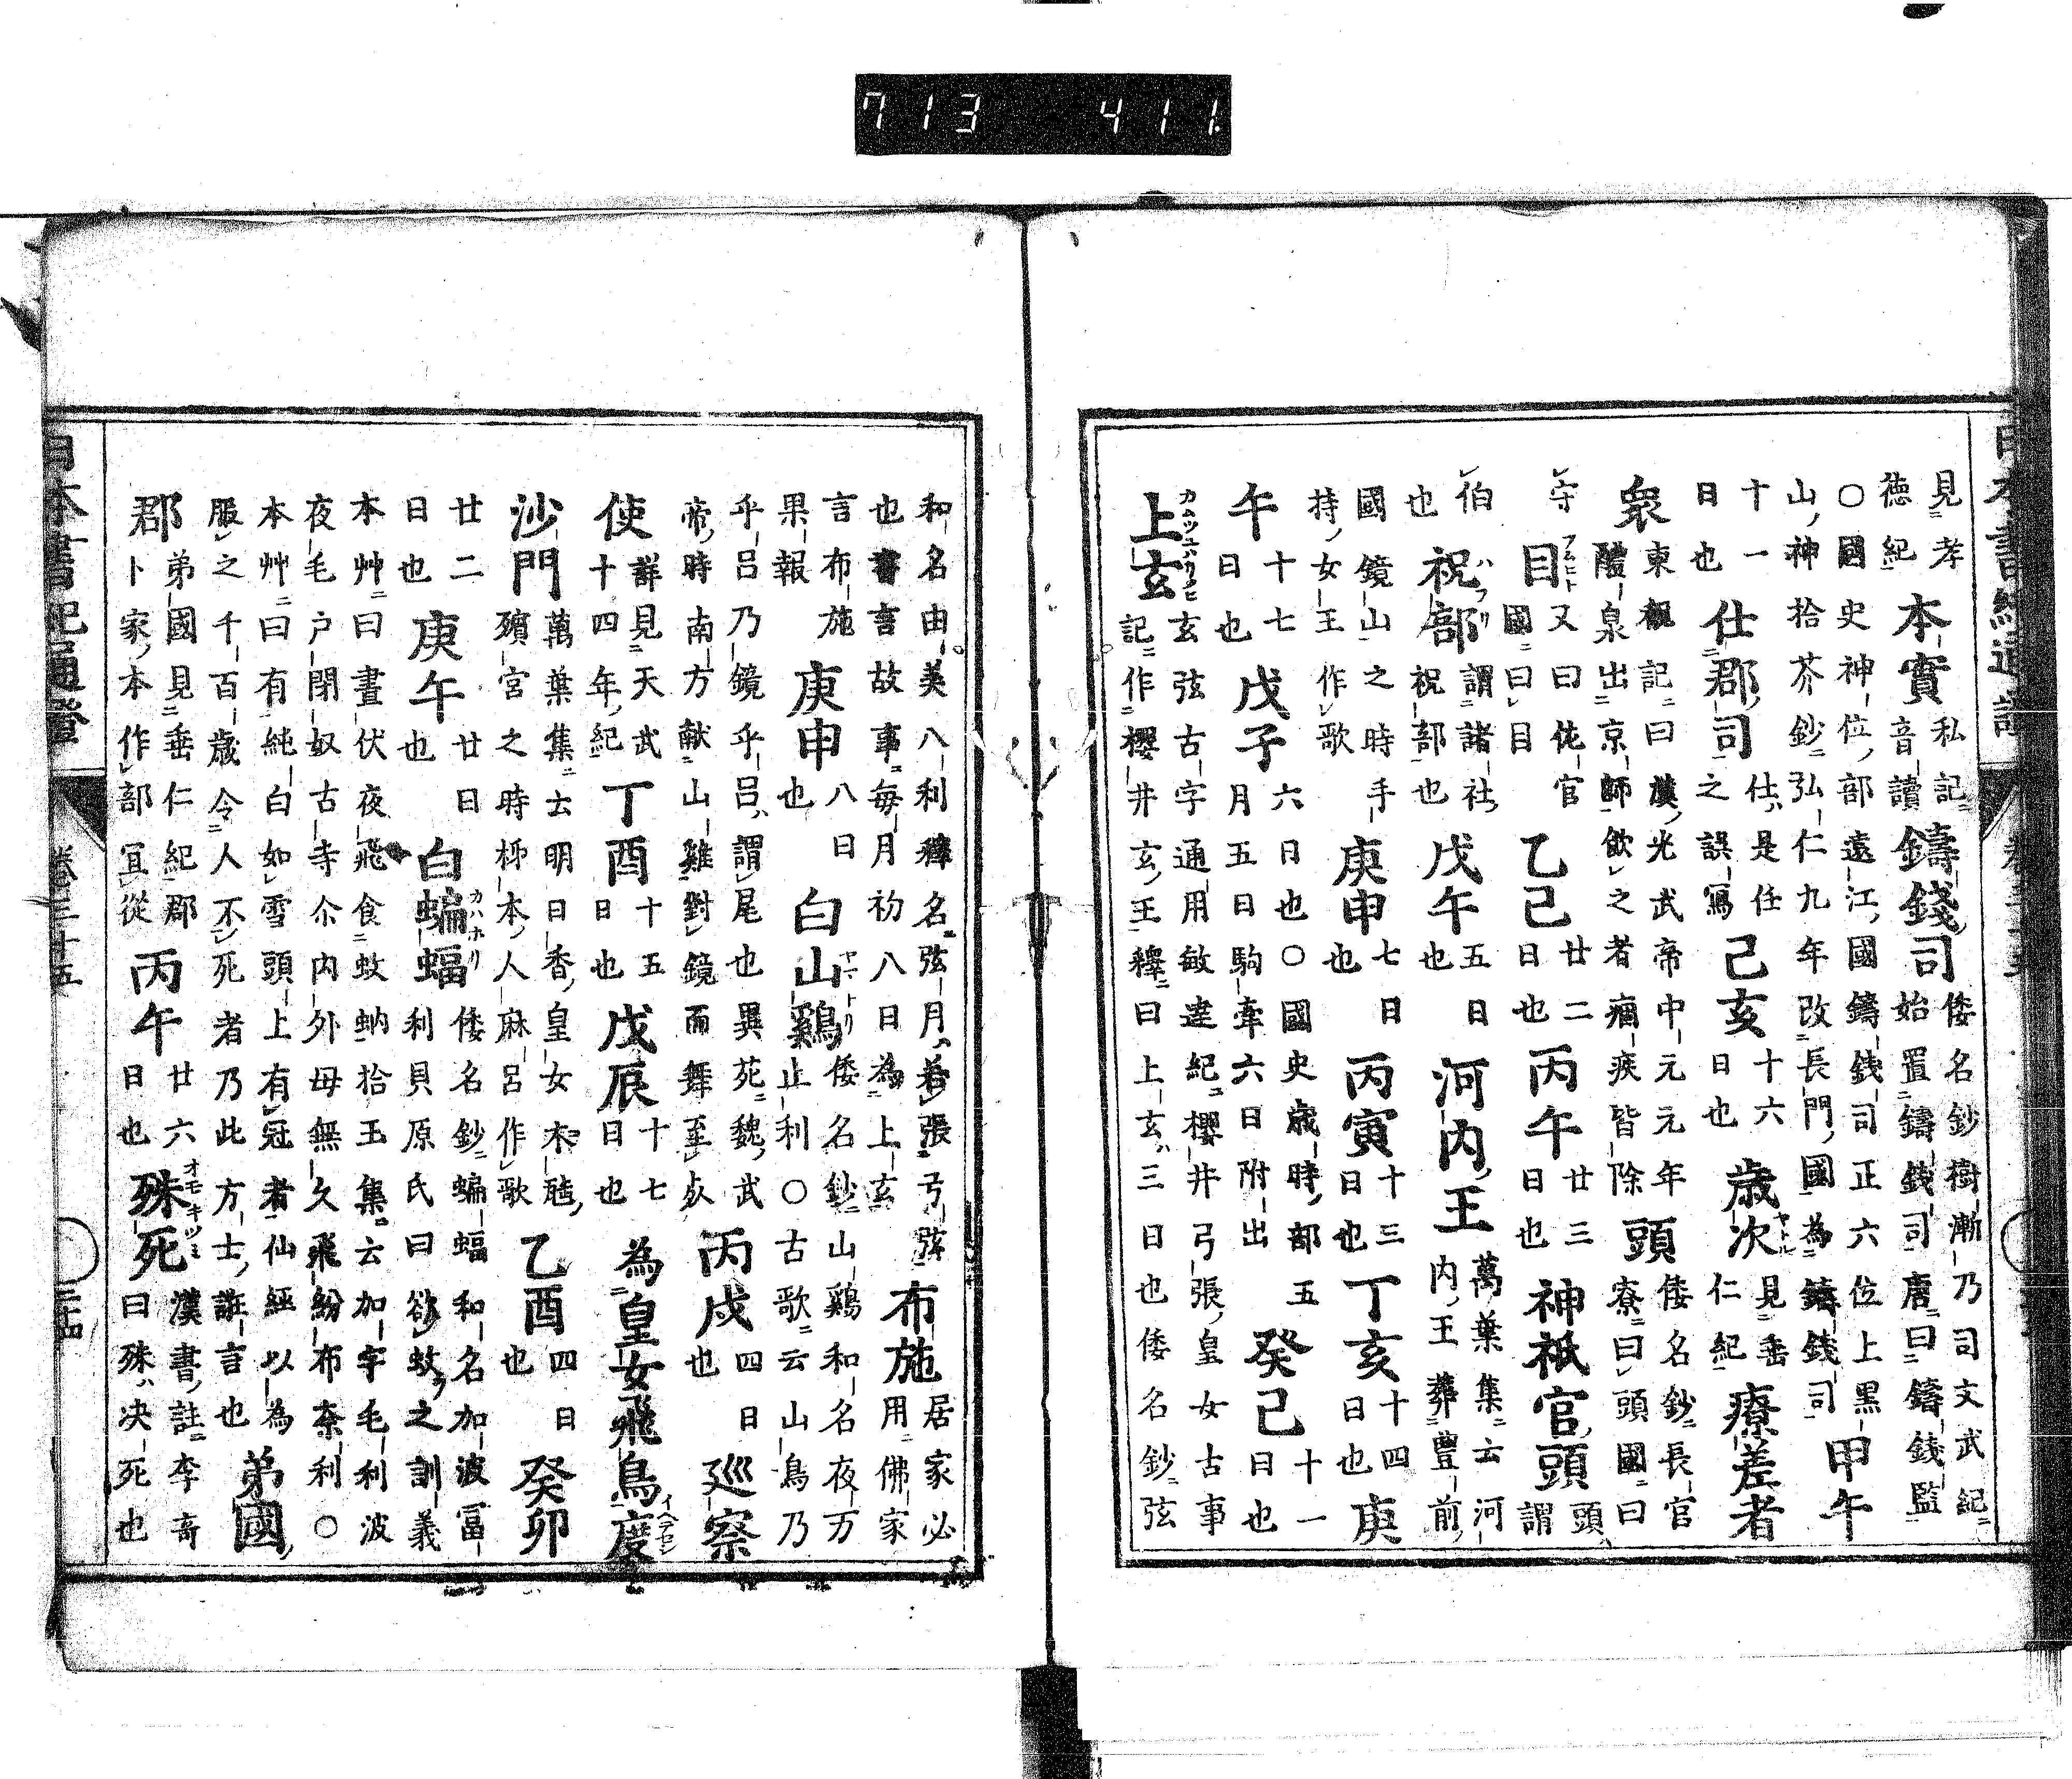 日本書紀通證
見孝德紀 本實 私記音讀 鑄錢司 倭名鈔樹漸乃司文武紀始置鑄錢司唐曰鑄錢監
○國史神位部遠江國鑄錢司正六位上黑山神拾芥鈔弘仁九年改長門國為鑄錢司 甲午
十一日也 仕郡司 仕是任之誤寫 己亥 十六日也 歲次ヤトル 見垂仁紀 療差者
衆 東觀記曰漢光武帝中元元年醴泉出京師飲之者痼疾皆除 頭 倭名鈔長官寮曰頭國曰
守 目 又曰佐官國曰目 乙巳 廿二日也 丙午 廿三日也 神祇官頭 頭謂
伯也 祝部ハフリ 謂諸社祝部也 戊午 五日也 河內王 萬葉集云河內王葬豐前
國鏡山之時手持女王作歌 庚申 七日也 丙寅 十三日也 丁亥 十四日也 庚
午 十七日也 戊子 六日也○國史歲時部五月五日駒牽六日附出 癸巳 十一日也
上玄 玄弦古字通用敏達紀櫻井弓張皇女古事記作櫻井玄王釋曰上玄三日也倭名鈔弦
和名由美八利釋名弦月若張弓弦也書言故事每月初八日為上玄 布施 居家必用佛家
言布施果報 庚申 八日也 白山鷄ヤマトリ 倭名鈔山鷄和名夜万止利○古歌云山鳥乃
乎呂乃鏡乎呂謂尾也異苑魏武帝時南方献山雞對鏡而舞至死 丙戌 四日也 巡察
使 詳見天武十四年紀 丁酉 十五日也 戊辰 十七日也 為皇女飛鳥度
沙門 萬葉集云明日香皇女木𤭖殯宮之時柿本人麻呂作歌 乙酉 四日也 癸卯
廿二日也 庚午 廿日也 白蝙蝠カハホリ 倭名鈔蝙蝠和名加波冨利貝原氏曰欲蚊之訓義
本艸曰晝伏夜飛食蚊蚋拾玉集云加宇毛利波夜毛戶閉奴古寺尒內外毋無久飛紛布奈利○
本艸曰有純白如雪頭上有冠者仙經以為服之千百歲令人不死者乃此方士誑言也 弟國
郡 弟國見垂仁紀郡卜家本作部冝從 丙午 廿六日也 殊死オモキツミ 漢書註李奇曰殊決死也
日本書紀通證 卷三十五 二十四